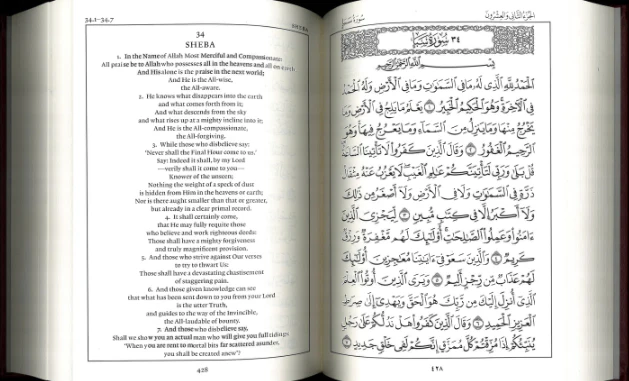 34.1–34.7
SHEBA
34
SHEBA
1. In the Name of Allah Most Merciful and Compassionate
All praise be to Allah who possesses all in the heavens and all on earth
And His alone is the praise in the next world;
And He is the All-wise,
the All-aware.
2. He knows what disappears into the earth
and what comes forth from it;
And what descends from the sky
and what rises up at a mighty incline into it;
And He is the All-compassionate,
the All-forgiving.
3. While those who disbelieve say:
'Never shall the Final Hour come to us.'
Say: Indeed it shall, by my Lord
—verily shall it come to you—
Knower of the unseen;
Nothing the weight of a speck of dust
is hidden from Him in the heavens or earth;
Nor is there aught smaller than that or greater,
but already in a clear primal record.
4. It shall certainly come,
that He may fully requite those
who believe and work righteous deeds:
Those shall have a mighty forgiveness
and truly magnificent provision.
5. And those who strive against Our verses
to try to thwart Us:
Those shall have a devastating chastisement
of staggering pain.
6. And those given knowledge can see
that what has been sent down to you from your Lord
is the utter Truth,
and guides to the way of the Invincible,
the All-laudable of bounty.
7. And those who disbelieve say,
Shall we show you an actual man who will give you full tidings
'When you are rent to mortal bits far scattered asunder,
you shall be created anew'?
428
الجزء الثاني والعشرون
سورة سبأ
٣٤ سورة سبأ
بسم الله الرحمن الرحيم
الحمد لله الذي له ما في السموت وما في الأرض وله الحمد
في الآخرة وهو الحكيم الخبير ١ يعلم ما يلج في الأرض وما
يخرج منها وما ينزل من السماء وما يعرج فيها وهو
الرحيم الغفور ٢ وقال الذين كفروا لا تأتينا الساعة
قل بلى وربي لتأتينكم علم الغيب لا يعزب عنه مثقال
ذرة في السموت ولا في الأرض ولا أصغر من ذلك
ولا أكبر إلا في كتب مبين ٣ ليجزي الذين
ءامنوا وعملوا الصلحت أولئك لهم مغفرة ورزق
كريم ٤ والذين سعو في ءايتنا معجزين أولئك
لهم عذاب من رجز أليم ٥ ويرى الذين أوتوا العلم
الذي أنزل إليك من ربك هو الحق ويهدي إلى صرط
العزيز الحميد ٦ وقال الذين كفروا هل ندلكم على رجل
ينبئكم إذا مزقتم كل ممزق إنكم لفي خلق جديد ٧
٤٢٨